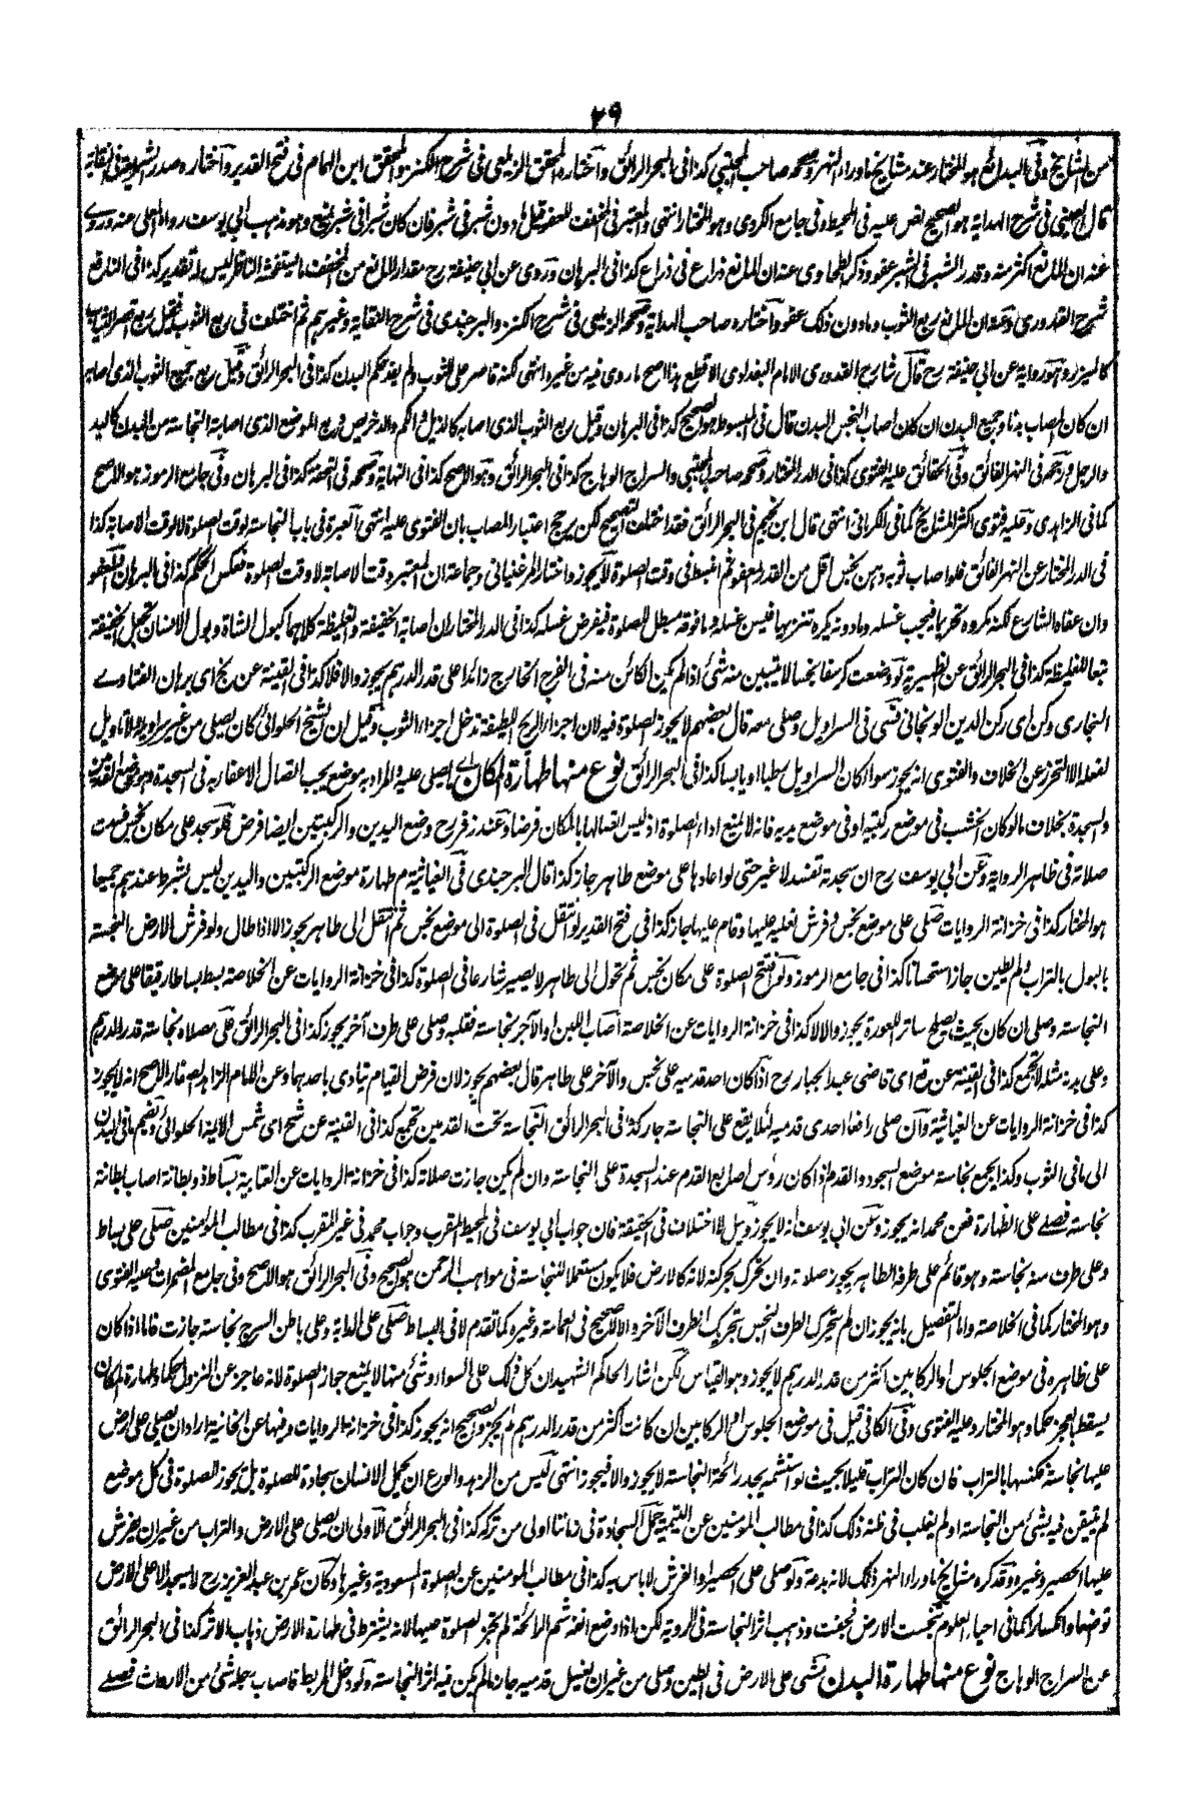 ٢٩
من المشايخ وفي البدائع هو المختار عند مشايخ ما وراء النهر وصححه صاحب المجتبى كذا في البحر الرائق وآختاره المحقق الزيلعي في شرح الكنز والمحقق ابن الهمام في فتح القدير وآختاره صدر الشريعة في النقاية
قال العيني في شرح الهداية هو الصحيح نص عليه في المحيط وفي جامع الكردي وهو المختار انتهى والمعتبر في الخفف للعفو قيل ما دون شبر في شبر فان كان شبرا في شبر يمنع وهو مذهب ابي يوسف رواه المعلى عنه وروي
عنه ان المانع اكثر منه وقدر الشبر في الشبر عفو وذكر الطحاوي عنه ان المانع ذراع في ذراع كذا في البرهان وروي عن ابي حنيفة رح مقدار المانع من المخففة ما يستفحشه الناظر ليس له تقدير كذا في النافع
شرح القدوري وعنه ان المانع ربع الثوب وما دون ذلك عفو وآختاره صاحب الهداية وصححه الزيلعي في شرح الكنز والبرجندي في شرح النقاية وغيرهم ثم اختلف في ربع الثوب فقيل ربع اقصر الثياب
كالميزر وهو رواية عن ابي حنيفة رح قال شارح القدوري الامام البغدادي الاقطع هذا اصح ما روي فيه من غيره انتهى لكنه قاصر على الثوب ولم يفد حكم البدن كذا في البحر الرائق وقيل ربع جميع الثوب الذي اصابه
ان كان المصاب بدنا وجميع البدن ان كان المصاب النجس البدن قال في المبسوط هو الصحيح كذا في البرهان وقيل ربع الثوب الذي اصابه كالذيل والكم والدخريص وربع الموضع الذي اصابته النجاسة من البدن كاليد
والرجل ورجحه في النهر الفائق وفي الحقائق عليه الفتوى كذا في الدر المختار وصححه صاحب المجتبى والسراج الوهاج كذا في البحر الرائق وهو الاصح كذا في النهاية وصححه في التحفة كذا في البرهان وفي جامع الرموز هو الاصح
كما في الزاهدي وعليه فتوى اكثر المشايخ كما في الكرماني انتهى قال ابن نجيم في البحر الرائق فقد اختلف التصحيح لكن يرجح اعتبار المصاب بان الفتوى عليه انتهى العبرة في باب النجاسة لوقت الصلوة لا لوقت الاصابة كذا
في الدر المختار عن النهر الفائق فلو اصاب ثوبه دهن نجس اقل من القدر المعفو ثم انبسط في وقت الصلوة لا يجوز واختار المرغيناني وجماعة ان المعتبر وقت الاصابة لا وقت الصلوة فعكس الحكم كذا في البرهان فالعفو
وان عفاه الشارع لكنه مكروه تحريما فيجب غسله وما دونه يكره تنزيها فيسن غسله وما فوقه مبطل للصلوة فيفرض غسله كذا في الدر المختار ان اصابه الخفيفة والغليظة كلاهما كبول الشاة وبول الانسان تجعل الخفيفة
تبعا للغليظة كذا في البحر الرائق عن الظهيرية لو وضعت كرسفا نجسا لا يتبين منه شيء اذا لم يكن الكائن منه في الفرج الخارج زائدا على قدر الدرهم يجوز والا فلا كذا في القنية عن بخ اي برهان الفتاوى
البخاري وكن اي ركن الدين الونجاني فسى في السراويل وصلى معه قال بعضهم لا يجوز الصلوة فيه لان اجزاء الريح اللطيفة تدخل اجزاء الثوب وقيل ان الشيخ الحلوائي كان يصلي من غير سراويله ولا تاويل
لفعله الا التحرز عن الخلاف والفتوى انه يجوز سواء كان السراويل رطبا او يابسا كذا في البحر الرائق نوع منها طهارة المكان اي ما يصلي عليه والمراد به موضع يجب اتصال الاعضاء به في السجدة وهو موضع القدمين
والسجدة بخلاف ما لو كان الخشب في موضع ركبتيه او في موضع يديه فانه لا يمنع اداء الصلوة اذ ليس اتصالها بالمكان فرضا وعند زفر رح وضع اليدين والركبتين ايضا فرض فلو سجد على مكان نجس فسدت
صلاته في ظاهر الرواية وعن ابي يوسف رح ان سجدته تفسد لا غير حتى لو اعادها على موضع طاهر جاز كذا قال البرجندي في الغياثية م طهارة موضع الركبتين واليدين ليس بشرط عندهم جميعا
هو المختار كذا في خزانة الروايات صلى على موضع نجس وفرش نعليه عليها وقام عليها جاز كذا في فتح القدير لو انتقل في الصلوة الى موضع نجس ثم انتقل الى طاهر يجوز الا اذا طال ولو فرش الارض النجسة
بالبول بالتراب ولم يطين جاز استحسانا كذا في جامع الرموز ولو افتتح الصلوة على مكان نجس ثم تحول الى طاهر لا يصير شارعا في الصلوة كذا في خزانة الروايات عن الخلاصة بسط بساطا رقيقا على موضع
النجاسة وصلى ان كان بحيث يصلح ساتر العورة يجوز والا لا كذا في خزانة الروايات عن الخلاصة اصاب اللبن او الآجر نجاسة فقلبه وصلى على طرف آخر يجوز كذا في البحر الرائق على مصلاه نجاسة قدر الدرهم
وعلى بدنه مثله لا تجمع كذا في القنية عن قع اي قاضي عبد الجبار رح اذا كان احد قدميه على نجس والآخر على طاهر قال بعضهم يجوز لان فرض القيام يتادى باحدهما وعن الامام الزاهد الصفار الاصح انه لا يجوز
كذا في خزانة الروايات عن الغياثية وان صلى رافعا احدى قدميه لئلا يقع على النجاسة جاز كذا في البحر الرائق النجاسة تحت القدمين تجمع كذا في القنية عن شح اي شمس الائمة الحلوائي ويضم ما في البدن
الى ما في الثوب وكذا يجمع نجاسة موضع السجود والقدم اذا كان رؤس اصابع القدم عند السجدة على النجاسة وان لم يكن جازت صلاته كذا في خزانة الروايات عن العتابية بساط ذو بطانة اصاب البطانة
نجاسة فصلى على الظهارة فعن محمد انه يجوز وعن ابي يوسف انه لا يجوز وقيل لا اختلاف في الحقيقة فان جواب ابي يوسف في المحيط المقرب وجواب محمد في غير المقرب كذا في مطالب المؤمنين صلى على بساط
وعلى طرف منه نجاسة وهو قائم على طرفه الطاهر يجوز صلوته وان تحرك بحركته لانه كالارض فلا يكون مستعملا للنجاسة في مواهب الرحمن هو الصحيح وفي البحر الرائق هو الاصح وفي جامع المضمرات وعليه الفتوى
وهو المختار كما في الخلاصة واما التفصيل بانه يجوز ان لم يتحرك الطرف النجس بتحريك الطرف الآخر والا لا فالصحيح في العمامة وغيره كما تقدم لا في البساط صلى على الدابة وعلى باطن السرج نجاسة جازت فاما اذا كان
على ظاهره في موضع الجلوس او الركابين اكثر من قدر الدرهم لا يجوز وهو القياس لكن اشار الحاكم الشهيد ان كل ذلك على السواء وشيء منها لا يمنع جواز الصلوة لانه عاجز عن النزول حكما وطهارة المكان
يسقط بالعجز حكما وهو المختار وعليه الفتوى وفي الكافي قيل في موضع الجلوس او الركابين ان كانت اكثر من قدر الدرهم لم يجز والصحيح انه يجوز كذا في خزانة الروايات وفيها عن الخانية اراد ان يصلي على ارض
عليها نجاسة فكنسها بالتراب فان كان التراب قليلا بحيث لو استشمه يجد رائحة النجاسة لا يجوز والا فيجوز انتهى ليس من الزهد والورع ان يحمل الانسان سجادة للصلوة بل يجوز الصلوة في كل موضع
لم يتيقن فيه بشيء من النجاسة او لم يغلب في ظنه ذلك كذا في مطالب المؤمنين عن اليتيمية حمل السجادة في زماننا اولى من تركه كذا في البحر الرائق الاولى ان يصلي على الارض والتراب من غير ان يفرش
عليها الحصير وغيره وقد كره مشايخ ما وراء النهر ذلك لانه بدعة ولو صلى على الحصير او الفرش لا باس به كذا في مطالب المؤمنين عن الصلوة المسعودية وغيرها وكان عمر بن عبد العزيز رح لا يسجد الا على الارض
تواضعا وانكسارا كما في احياء العلوم تنجست الارض فجفت وذهب اثر النجاسة في الروية لكن اذا وضع انفه شم الرائحة لم يجز الصلوة عليها لانه يشترط في طهارة الارض ذهاب الاثر كذا في البحر الرائق
عن السراج الوهاج نوع منها طهارة البدن مشى على الارض في الطين وصلى من غير ان يغسل قدميه جاز ما لم يكن فيه اثر النجاسة ولو دخل المربط فاصاب رجله شيء من الارواث فصلى